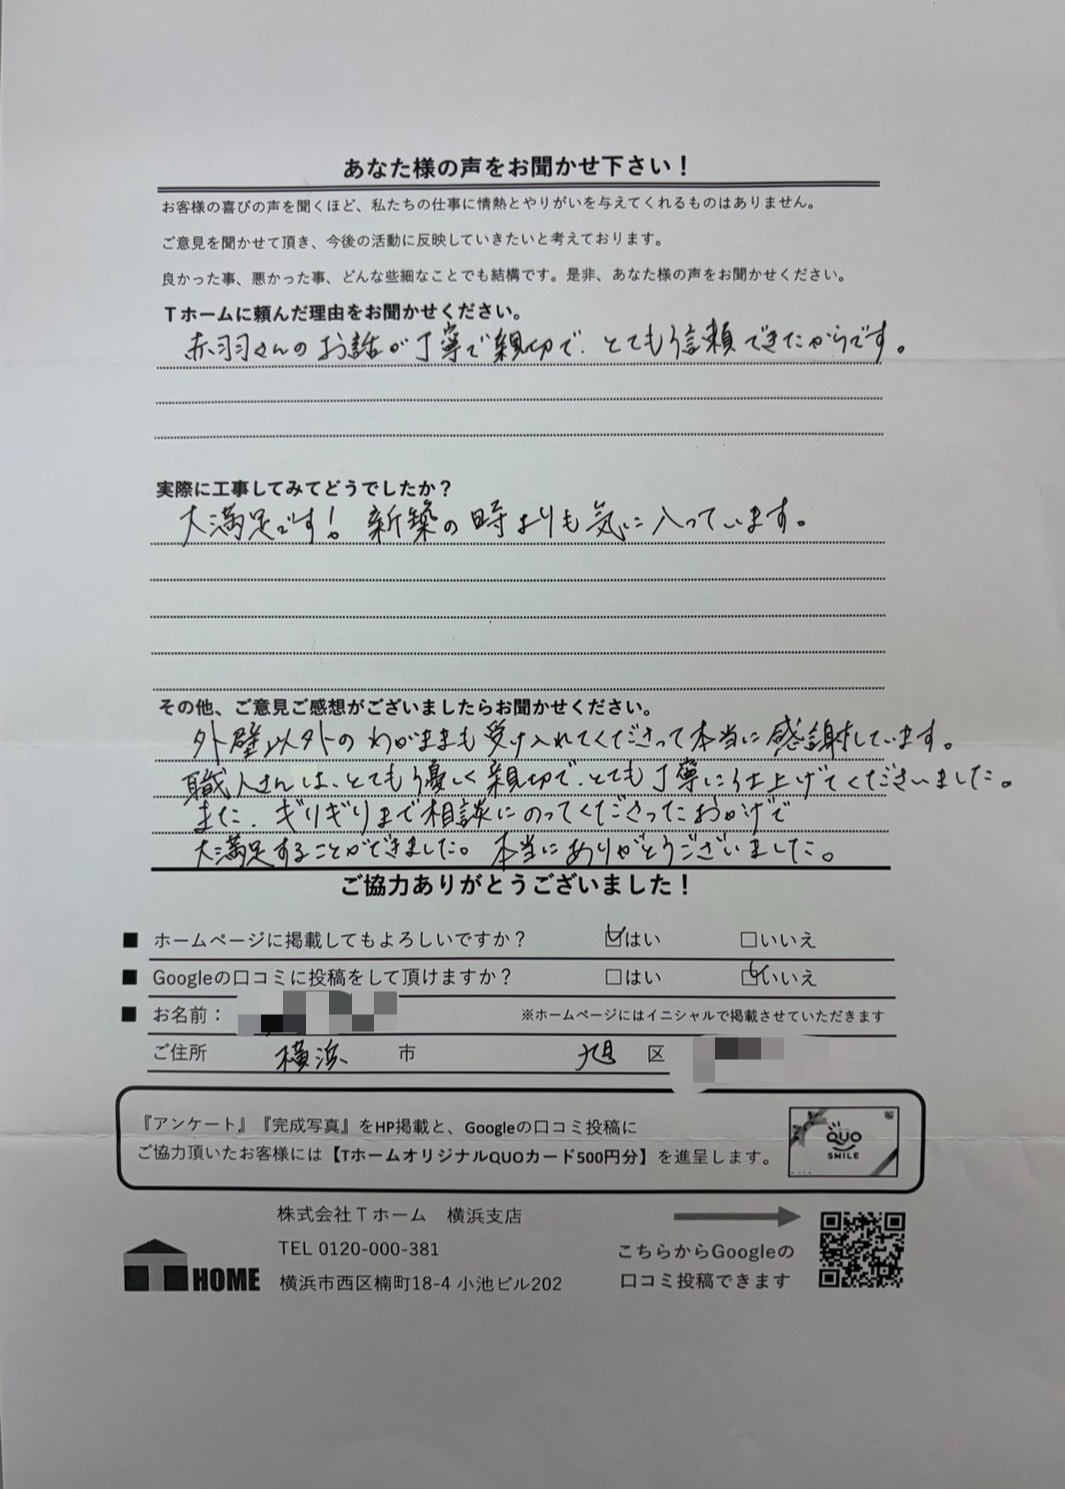 あなた様の声をお聞かせ下さい！
お客様の喜びの声を聞くほど、私たちの仕事に情熱とやりがいを与えてくれるものはありません。
ご意見を聞かせて頂き、今後の活動に反映していきたいと考えております。
良かった事、悪かった事、どんな些細なことでも結構です。是非、あなた様の声をお聞かせください。
Tホームに頼んだ理由をお聞かせください。
赤羽さんのお話が丁寧で親切で、とても信頼できたからです。
実際に工事してみてどうでしたか？
大満足です！新築の時よりも気に入っています。
その他、ご意見ご感想がございましたらお聞かせください。
外壁以外のわがままも受け入れてくださって本当に感謝しています。
職人さんは、とても優しく親切で、とても丁寧に仕上げてくださいました。
また、ぎりぎりまで相談にのってくださったおかげで
大満足することができました。本当にありがとうございました。
ご協力ありがとうございました！
■ ホームページに掲載してもよろしいですか？ ☑はい □いいえ
■ Googleの口コミに投稿をして頂けますか？ □はい ☑いいえ
■ お名前： ※ホームページにはイニシャルで掲載させていただきます
ご住所 横浜 市 旭 区
『アンケート』『完成写真』をHP掲載と、Googleの口コミ投稿に
ご協力頂いたお客様には【TホームオリジナルQUOカード500円分】を進呈します。
QUO
SMILE
株式会社Tホーム 横浜支店
TEL 0120-000-381
横浜市西区楠町18-4 小池ビル202
HOME
こちらからGoogleの
口コミ投稿できます